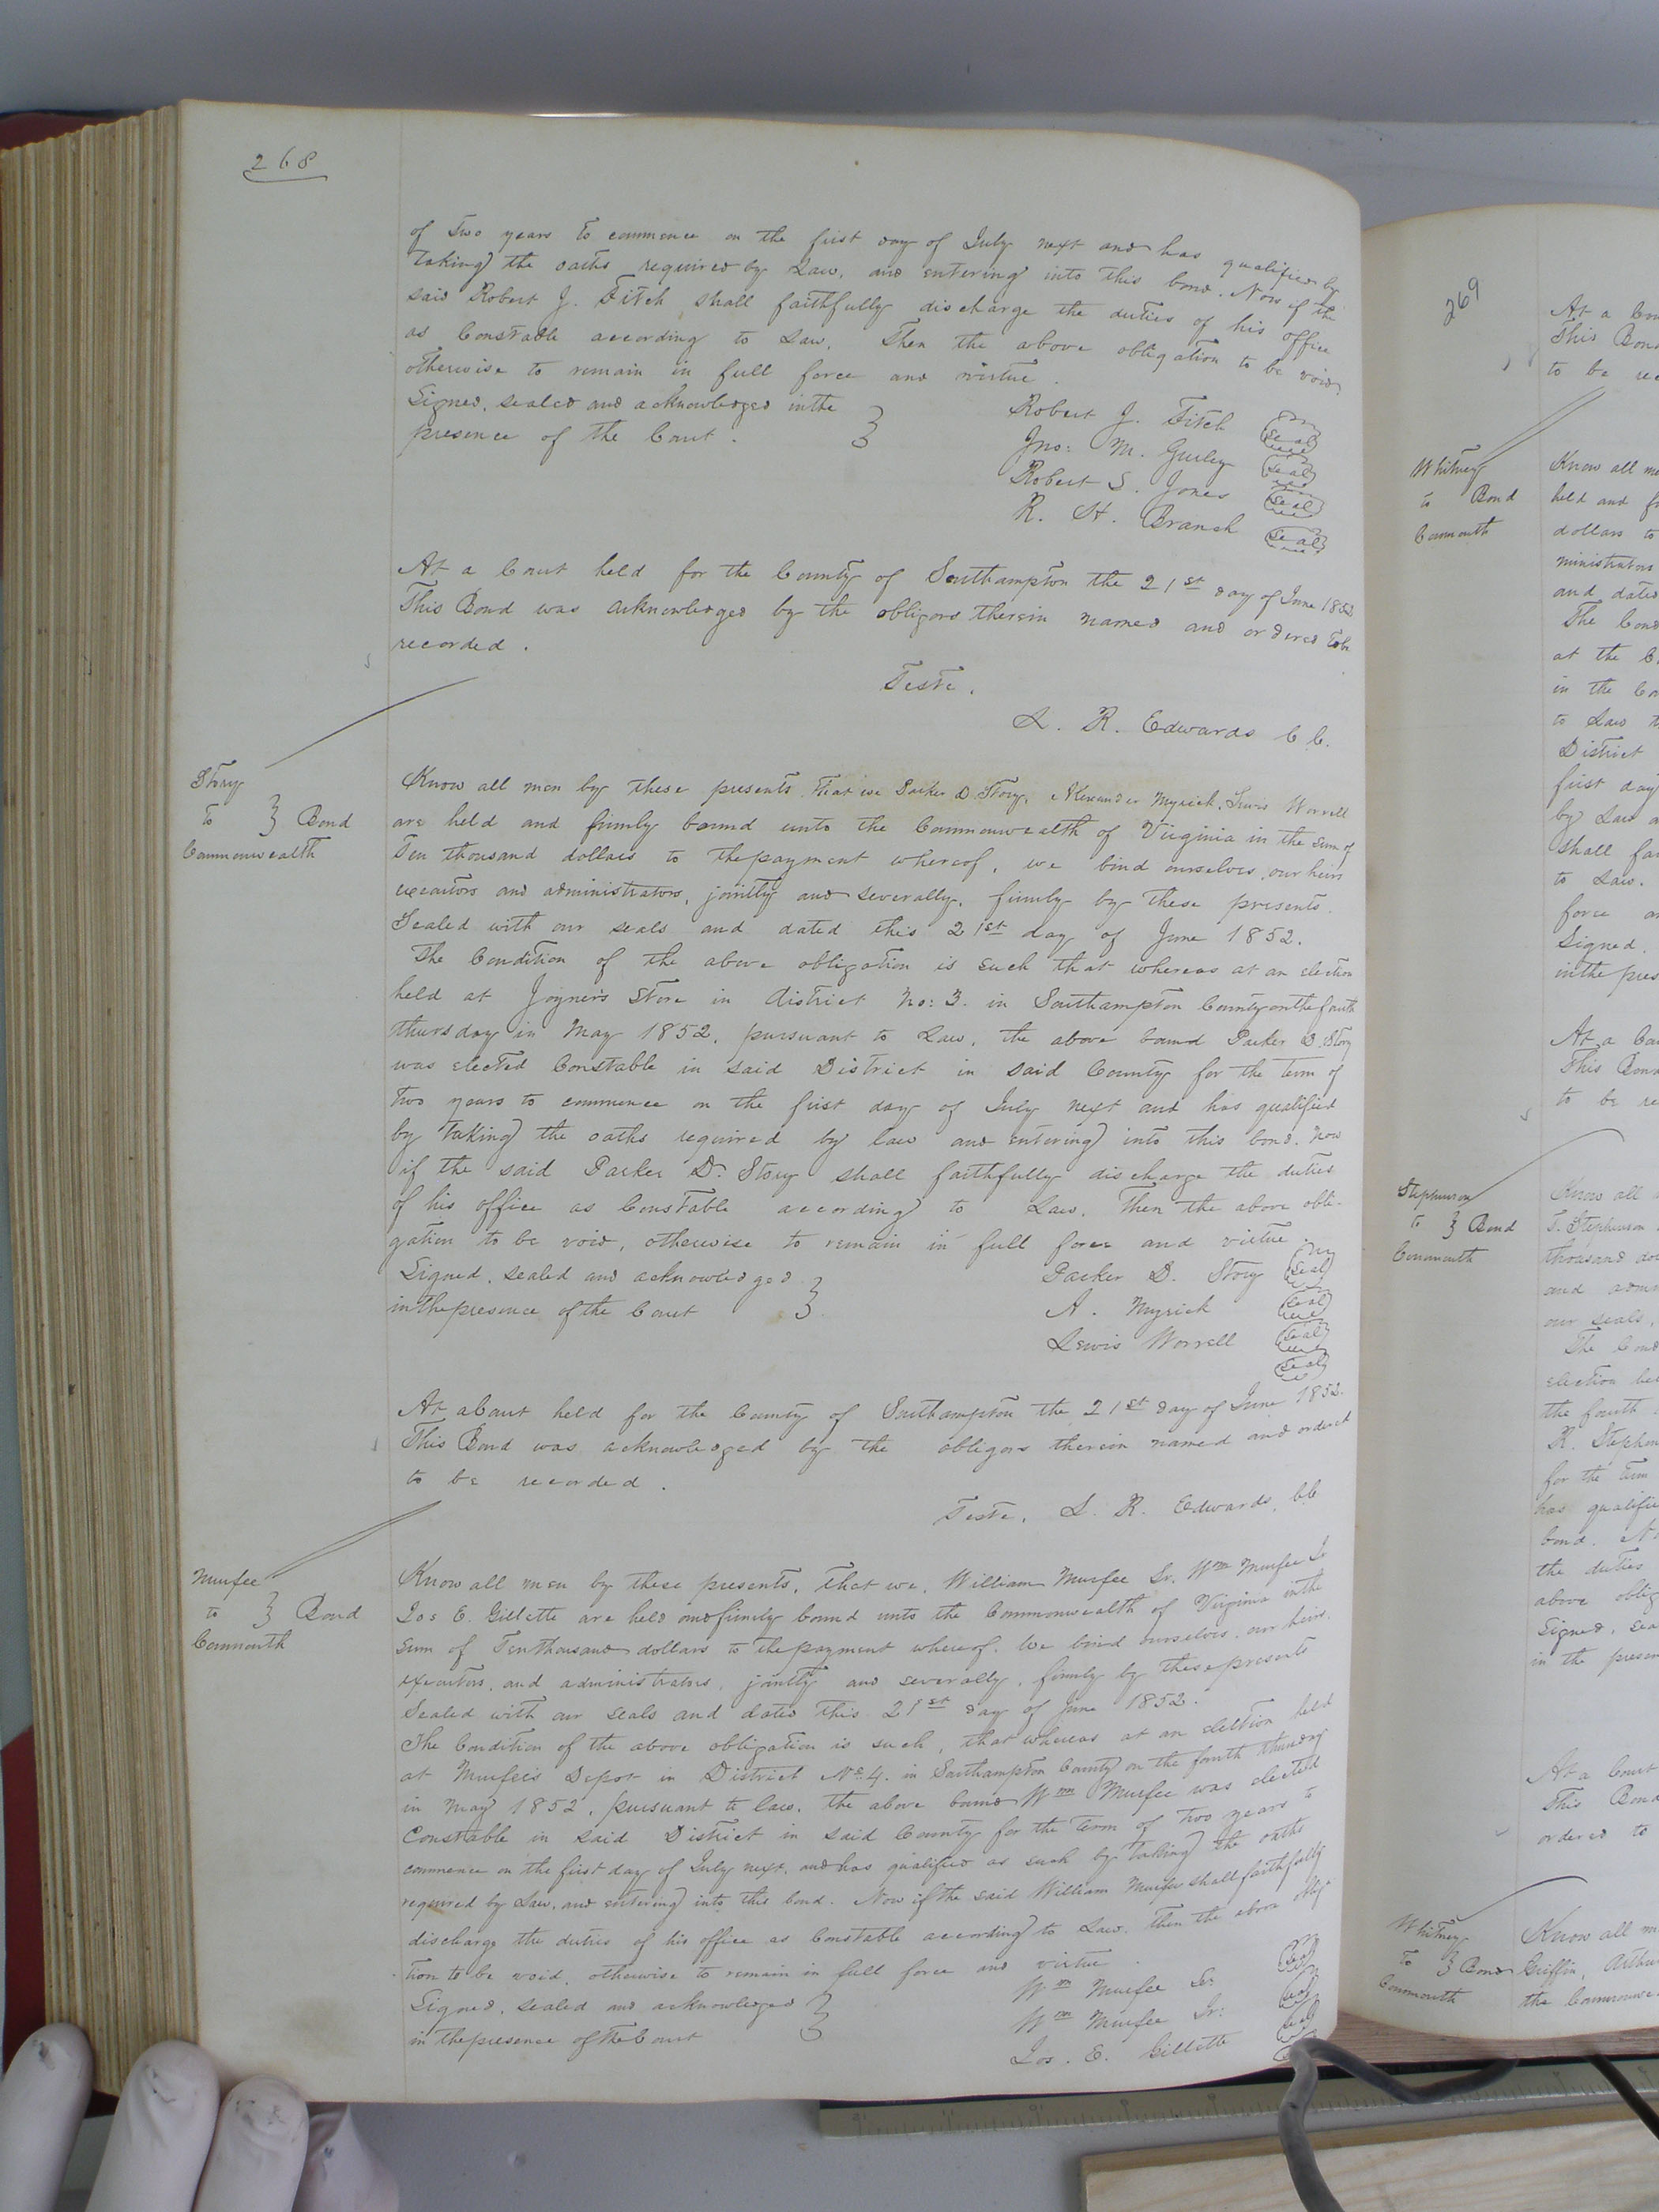 268
of two years to commence on the first day of July next and has qualified by
taking the oaths required by Law, and entering into this bond. Now if the
said Robert J. Fitch shall faithfully discharge the duties of his office
as Constable according to Law, Then the above obligation to be void
otherwise to remain in full force and virtue.
Signed, sealed and acknowledged in the
presence of the Court.
Robert J. Fitch Seal
Jno: M. Gurley Seal
Robert S. Jones Seal
R. H. Branch Seal
At a Court held for the County of Southampton the 21st day of June 1852
This Bond was acknowledged by the obligors therein named and ordered to be
recorded.
Teste.
L. R. Edwards C C.
Story
to } Bond
Commonwealth
Know all men by these presents that we Parker D. Story, Alexander Myrick, Lewis Worrell
are held and firmly bound unto the Commonwealth of Virginia in the sum of
Ten thousand dollars to the payment whereof, we bind ourselves, our heirs
executors and administrators, jointly and severally, firmly by these presents.
Sealed with our seals and dated this 21st day of June 1852.
The Condition of the above obligation is such that whereas at an election
held at Joyner's Store in district No: 3. in Southampton County on the fourth
thursday in May 1852, pursuant to Law, the above bound Parker D. Story
was elected Constable in said District in said County for the term of
two years to commence on the first day of July next and has qualified
by taking the oaths required by law and entering into this bond. Now
if the said Parker D. Story shall faithfully discharge the duties
of his office as Constable according to Law, Then the above obli-
gation to be void, otherwise to remain in full force and virtue.
Signed, sealed and acknowledged
in the presence of the Court
Parker D. Story Seal
A. Myrick Seal
Lewis Worrell Seal
Seal
At a Court held for the County of Southampton the 21st day of June 1852.
This Bond was acknowledged by the obligors therein named and ordered
to be recorded.
Teste, L. R. Edwards, CC
Murfee
to } Bond
Commonwth
Know all men by these presents, That we, William Murfee Sr, Wm Murfee Jr
Jos E. Gillette are held and firmly bound unto the Commonwealth of Virginia in the
sum of Ten thousand dollars to the payment whereof. We bind ourselves, our heirs.
executors, and administrators, jointly and severally, firmly by these presents
Sealed with our seals and dated this 21st day of June 1852.
The Condition of the above obligation is such, that whereas at an election held
at Murfee's Depot in District No 4. in Southampton County on the fourth thursday
in May 1852, pursuant to law, the above bound Wm Murfee was elected
Constable in said District in said County for the term of two years to
commence on the first day of July next, and has qualified as such by taking the oaths
required by Law, and entering into this bond. Now if the said William Murfee shall faithfully
discharge the duties of his office as Constable according to Law. Then the above obliga
tion to be void, otherwise to remain in full force and virtue.
Signed, sealed and acknowledged
in the presence of the Court
Wm Murfee Sr: Seal
Wm Murfee Jr: Seal
Jos. E. Gillette Seal
269
At a Cou
This Bond
to be rec
Whitney
to Bond
Commonwth
Know all me
held and fi
dollars to
ministrators
and dated
The Cond
at the C
in the Co
to Law th
District
first day
by Law a
shall fai
to Law.
force an
Signed,
in the pres
At a Cou
This Bond
to be re
Stephenson
to } Bond
Commonwth
Know all
T. Stephenson
thousand dol
and admi
our seals,
The Cond
election hel
the fourth
R. Stephen
for the term
has qualifie
bond. N
the duties
above oblig
Signed, sea
in the presen
At a Court
This Bond
ordered to
Whitney
to } Bond
Commonwth
Know all m
Griffin, Arthu
the Commonwe